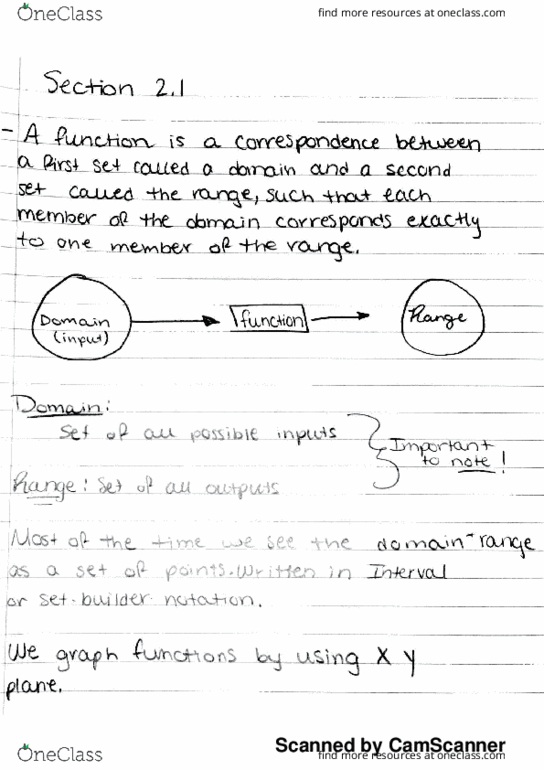 OneClass
find more resources at oneclass.com
Section 2.1
- A function is a correspondence between
a first set called a domain and a second
set called the range, such that each
member of the domain corresponds exactly
to one member of the range.
Domain
(input)
function
Range
Domain:
Set of all possible inputs
Important
to note!
Range: Set of all outputs
Most of the time we see the domain-range
as a set of points. Written in Interval
or set-builder notation.
We graph functions by using X Y
plane.
Scanned by CamScanner
OneClass
find more resources at oneclass.com